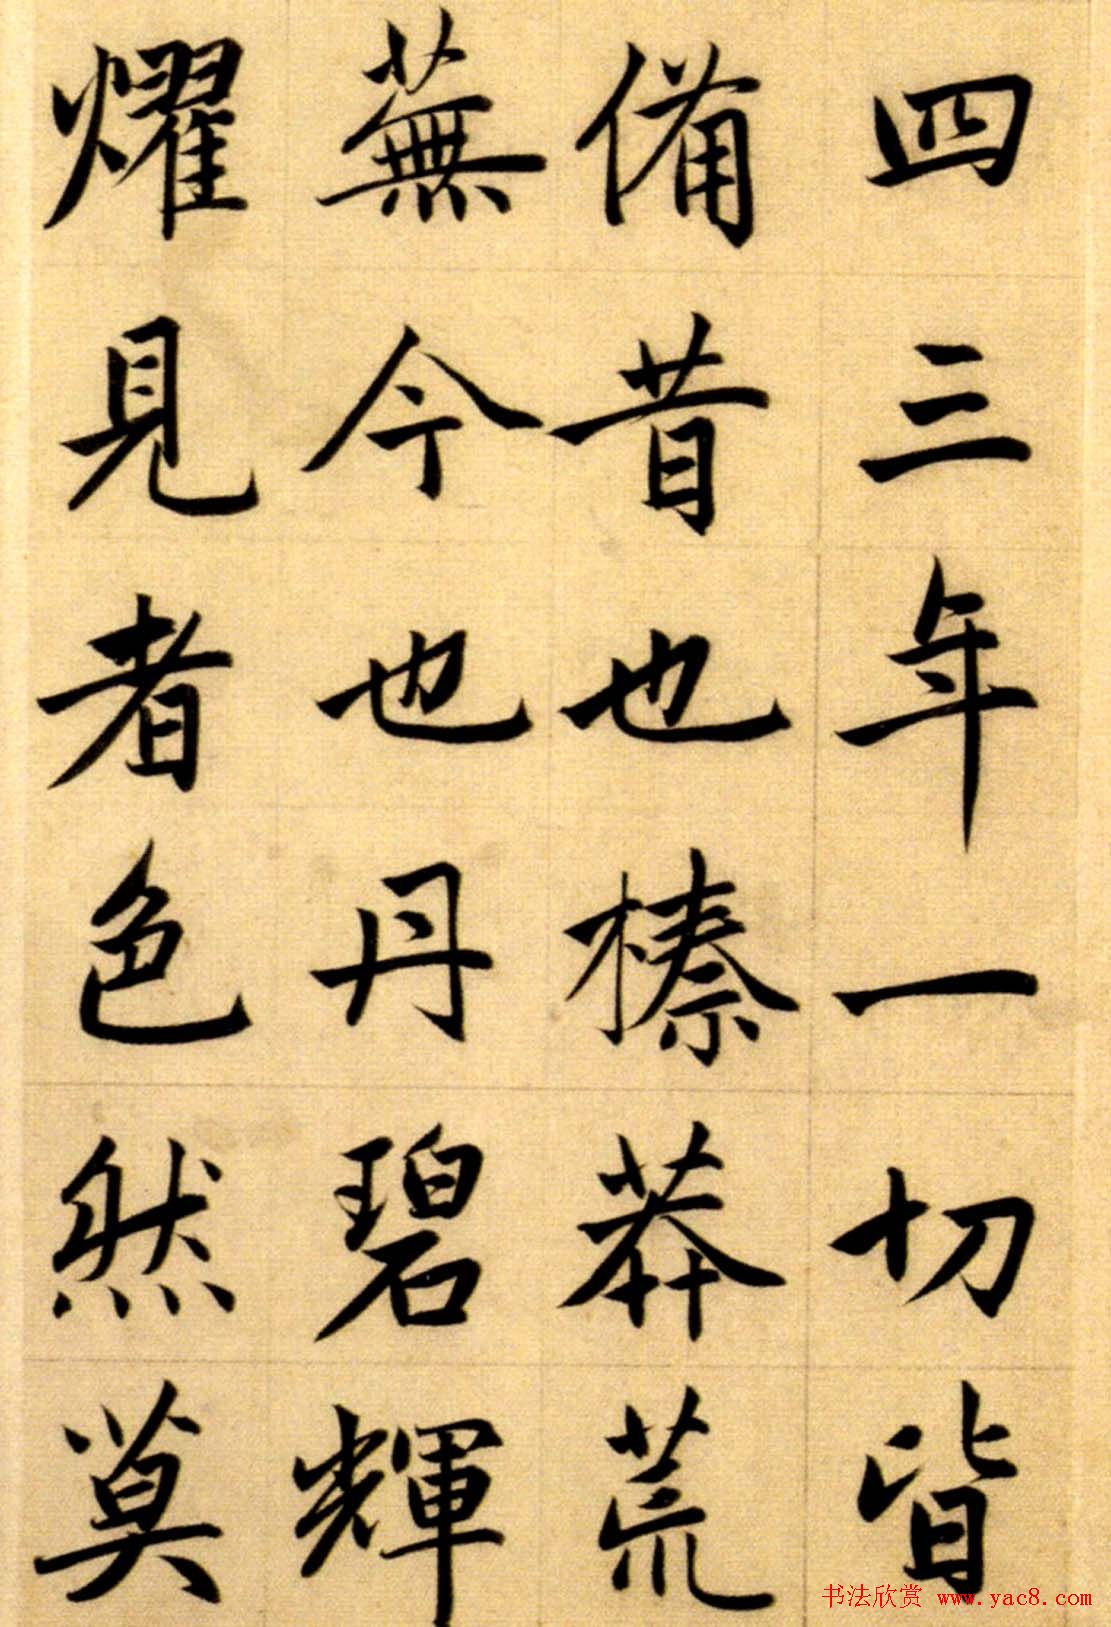 四三年一切皆
備昔也榛莽荒
蕪今也丹碧輝
耀見者色然莫
书法欣赏 www.yac8.com